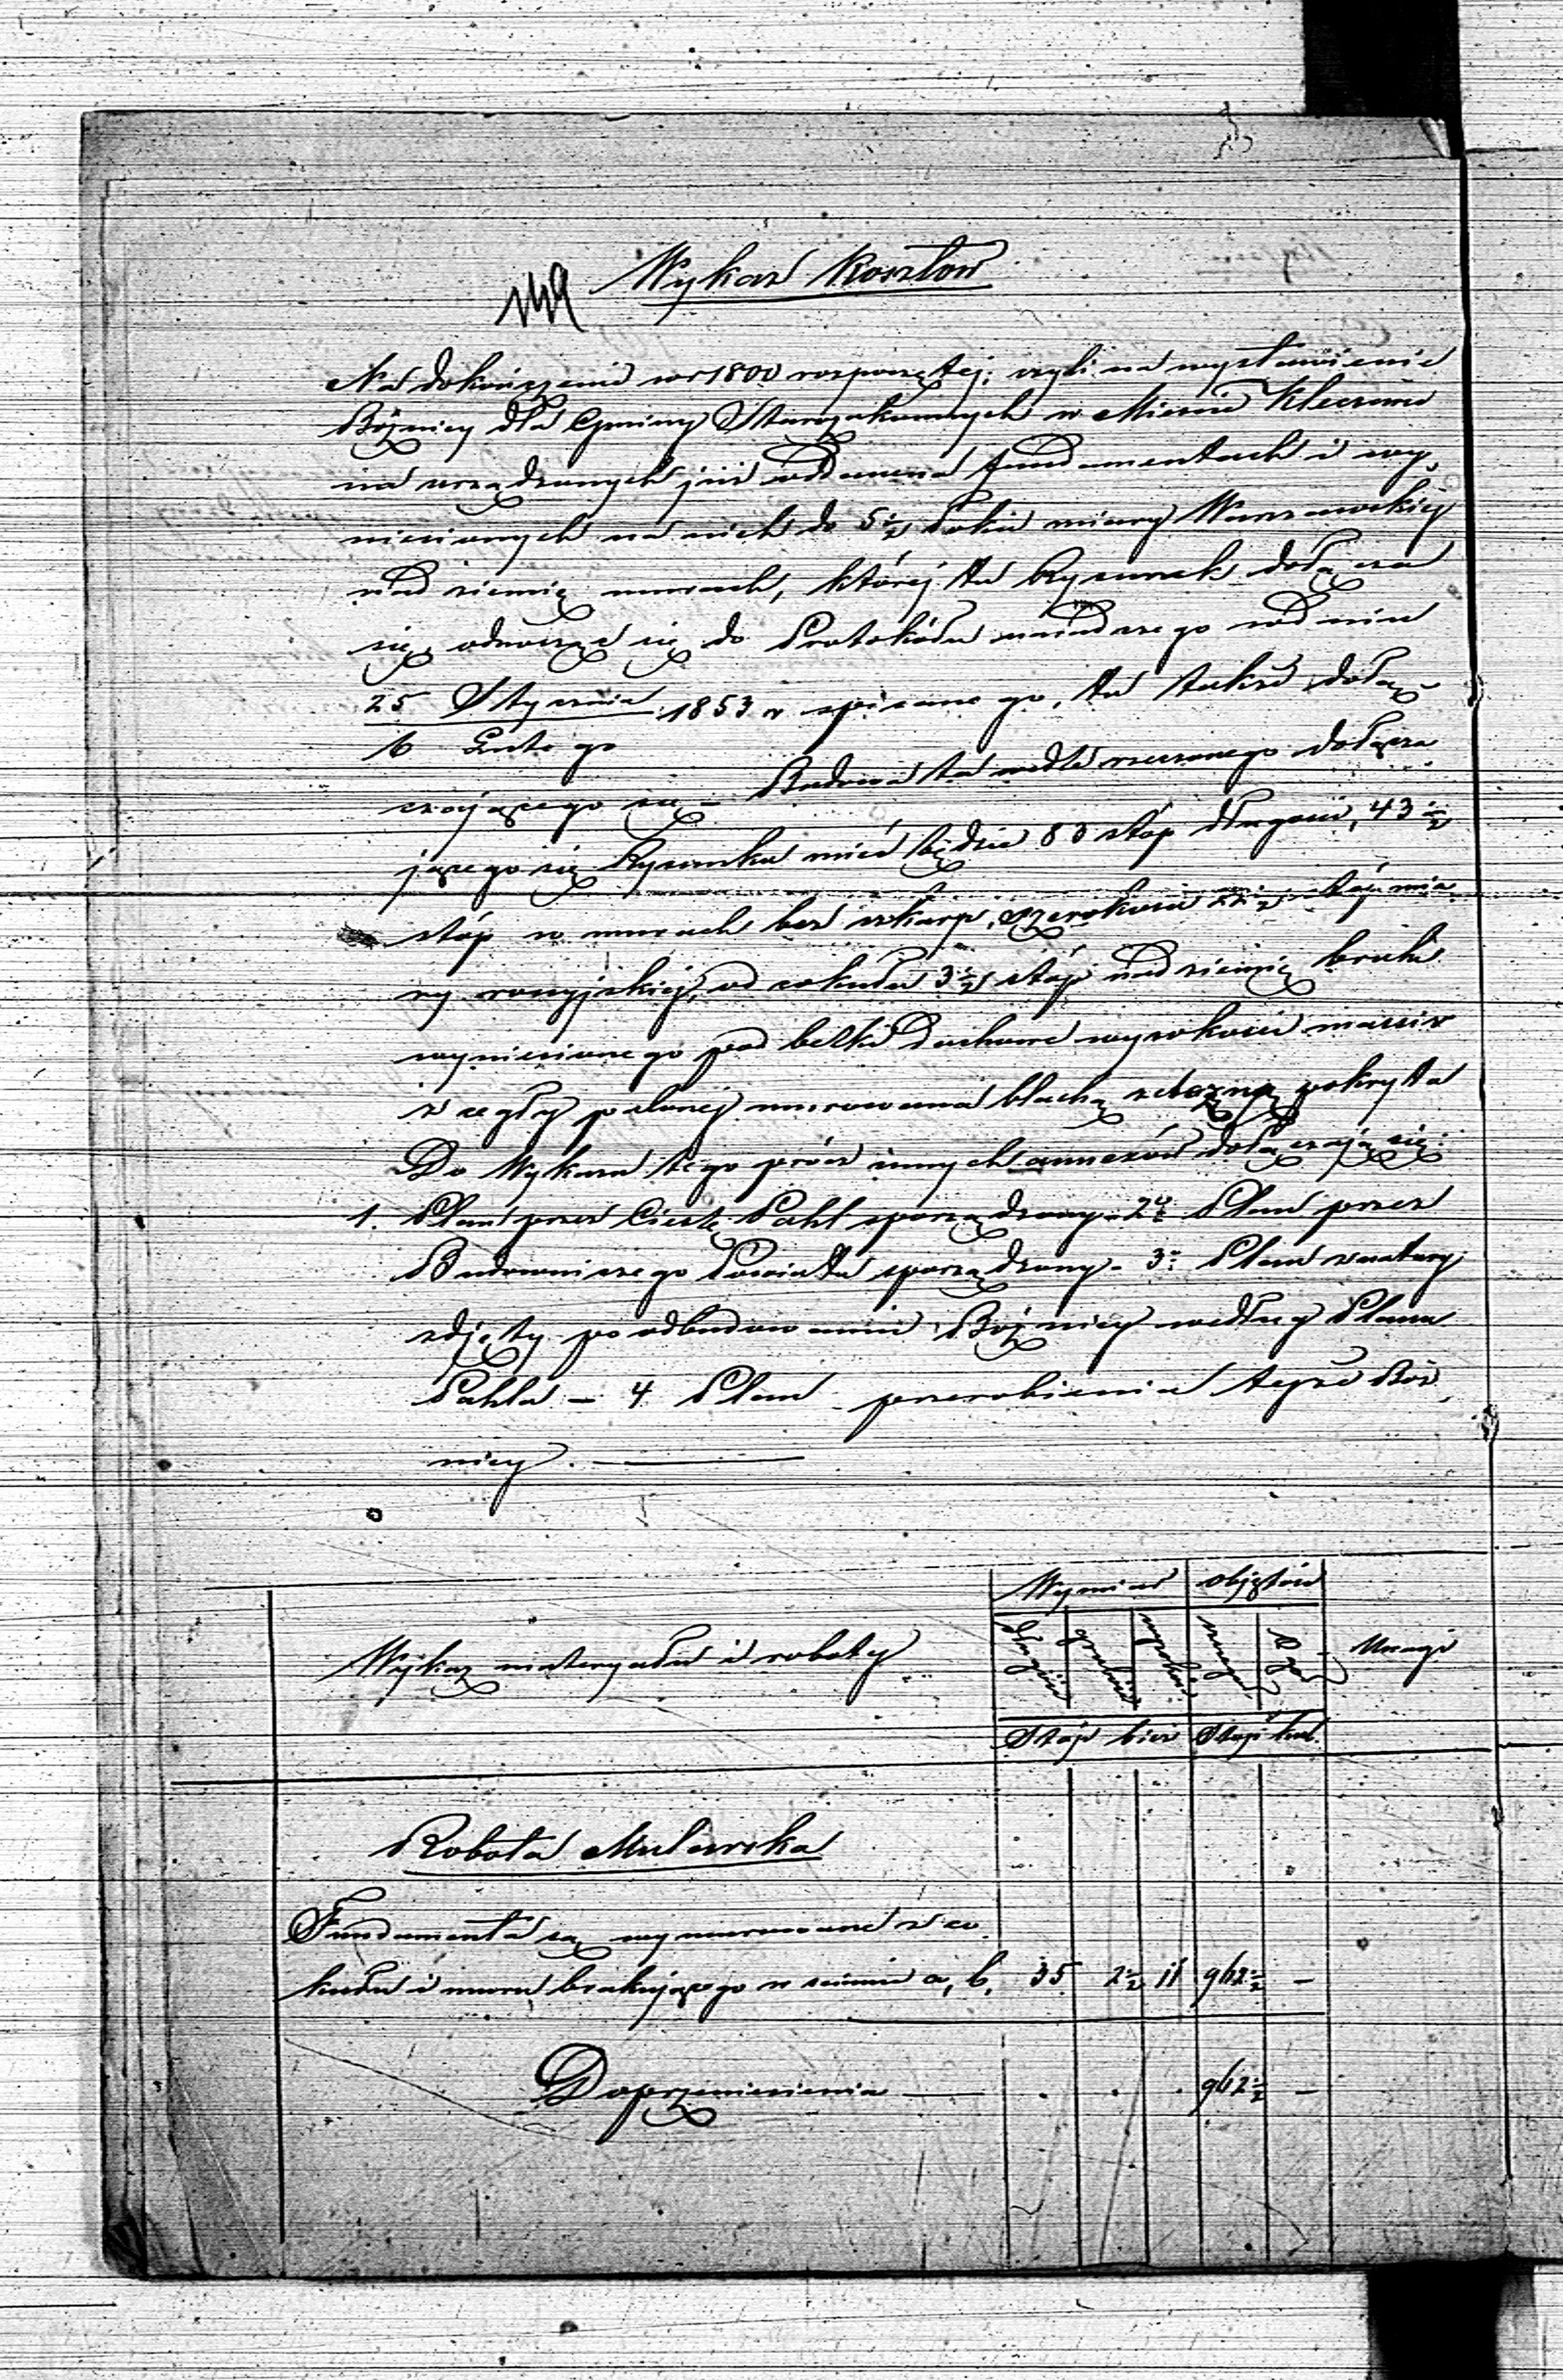 Wykaz Kosztów
Na dokończenie w r 1800 rozpoczętej; czyli na wystawienie
Bóżnicy dla Gminy Starozakonnych w Mieście Kleczewie
na urządzonych już oddawna fundamentach i wy
niesionych na nich do 5 1/2 łokci miary Warszawskiej
nad ziemię murach, której tu Rysunek dołącza
się, odnosząc się do Protokółu w dniu
25 Stycznia 1853 r spisanego, tu także dołą
6 Lutego
czającego się – Budowa ta wedle rzeczonego dołącza
jącego się Rysunku mieć będzie 83 stóp długości, 43 1/2
stóp w murach bez szkarp, szerokości 22 1/2 stóp mia
ry rossyjskiej, od cokułu 3 1/2 stóp nad ziemię
wyniesionego pod belki dachowe wysokości massiv
z cegły palonej murowana blachą żelazną pokryta
Do Wykazu tego prócz innych annexów dołączają się:
1. Plan przez Cieślę Pahl sporządzony – 2. Plan przez
Budowniczego Powiatu sporządzony – 3. Plan z natury
zdjęty po odbudowaniu Bóżnicy według Planu
Pahla – 4 Plan przerobienia tejże Boż
nicy.
Wykaz materyału i roboty
Wymiar objętość
długość grubość wysokość Uwagi
Stóp bież Stóp kub.
Robota Mularska
Fundamenta są wymurowane z co
kułu i muru brakującego w ścianie a, b. 35 2 1/2 11 962 1/2 –
Do przeniesienia — . . . 962 1/2 –